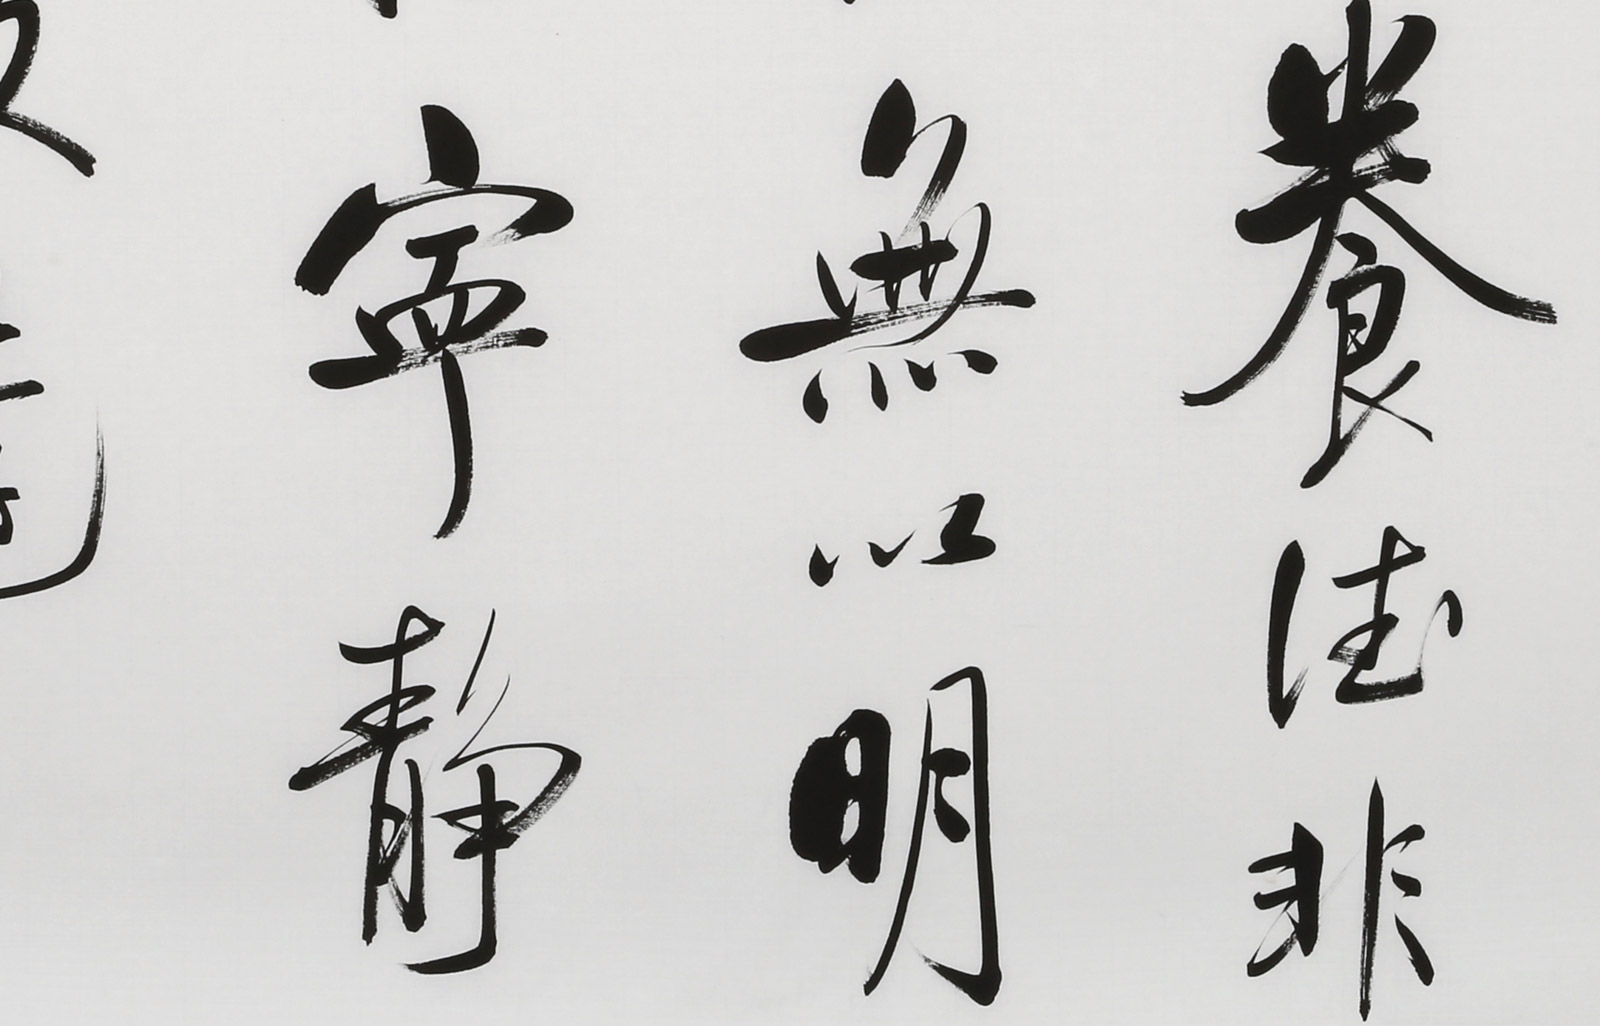 養德非
無以明
寧靜